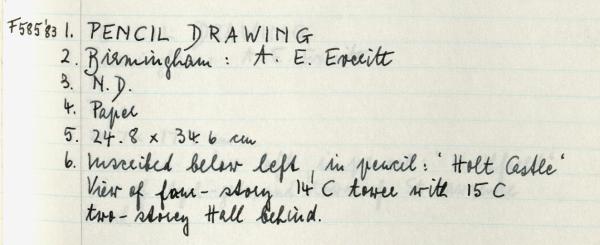 F585'83 1. PENCIL DRAWING
2. Birmingham: A. E. Everitt
3. N.D.
4. Paper
5. 24.8 x 34.6 cm
6. Inscribed below left, in pencil: 'Holt Castle'
View of four-story 14C tower with 15C
two-storey Hall behind.